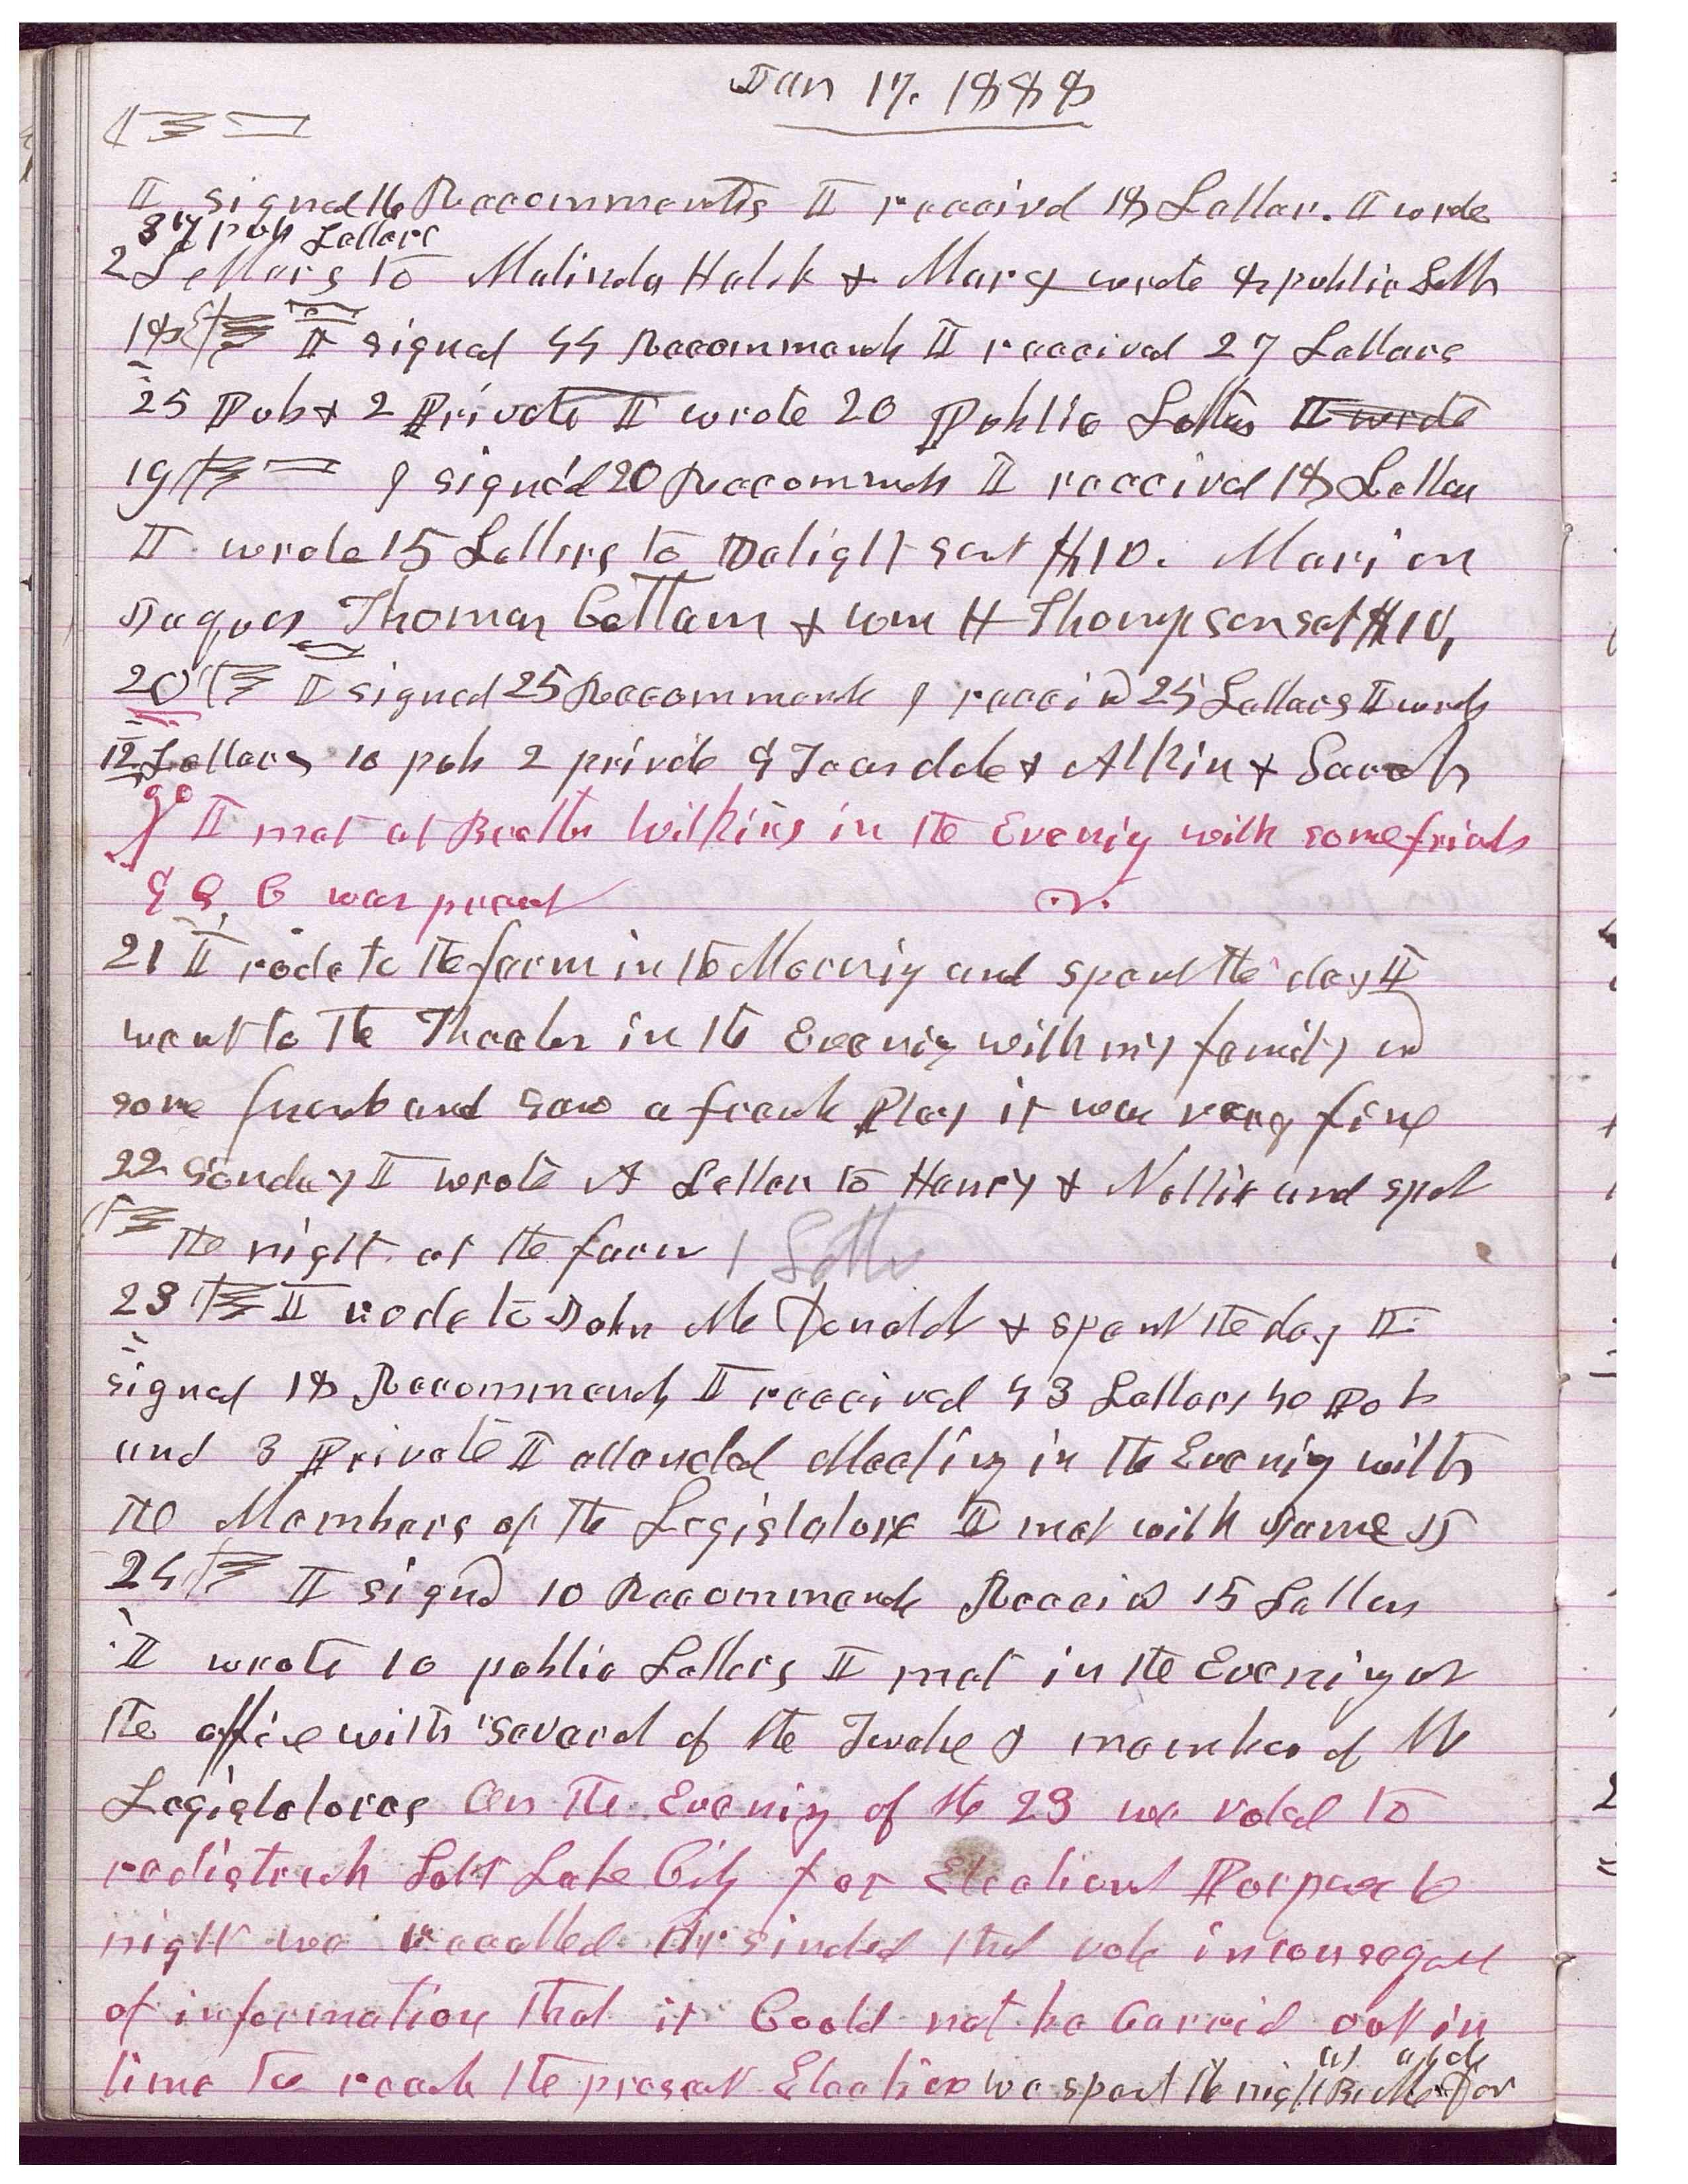 Jan 17. 1888
I signed 16 Recommends I receivd 18 Letters. I wrote
17 pub Letters
2 Letters to Malinda Hatch & Mary wrote 8 public Letts
18 I signed 44 Recommends I received 27 Letters
25 Pub & 2 Private I wrote 20 Public Letters I wrote
19 I signed 20 Recommends I received 18 Letters
I wrote 15 Letters to Delight sent $10. Marion
Jaques Thomas Cottam & Wm H Thompson set $10,
20 I signed 25 Recommends I receivd 25 Letters I wrote
12 Letters 10 pub 2 private & Teasdale & Atkin & Sarah
I met at Brother Wilkins in the Evenig with some frieds
was preset
21 I rode to the farm in the Mornig and spent the day I
went to the Theater in the Evenig with my family and
some friends and saw a french Play it was very fine
22 Sunday I wrote A Letter to Henry & Nellie and spet
the night at the farm 1 Letter
23 I rode to John McDonald & spent the day I
signed 18 Recommends I received 43 Letters 40 Pub
and 3 Private I attended Meeting in the Evenig with
the Members of the Legislature I met with same J J
24 I signd 10 Recommends Receivd 15 Letters
I wrote 10 public Letters I met in the Evening at
the office with several of the Twelve & members of the
Legislatures On the Evenig of the 23 we voted to
redistrict Salt Lake City for Election Purposes to
night we that vote in conseque
of information that it Could not be Carried out in
time to reach the present Election we spent the night